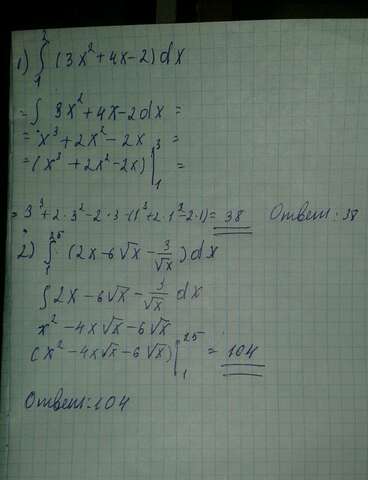 1) ∫₁³ (3x² + 4x - 2) dx
= ∫ 3x² + 4x - 2 dx =
= x³ + 2x² - 2x =
= (x³ + 2x² - 2x) |₁³ =
= 3³ + 2 · 3² - 2 · 3 - (1³ + 2 · 1² - 2 · 1) = 38 Ответ: 38
2) ∫₁²⁵ (2x - 6√x - 3/√x) dx
∫ 2x - 6√x - 3/√x dx
x² - 4x√x - 6√x
(x² - 4x√x - 6√x) |₁²⁵ = 104
Ответ: 104